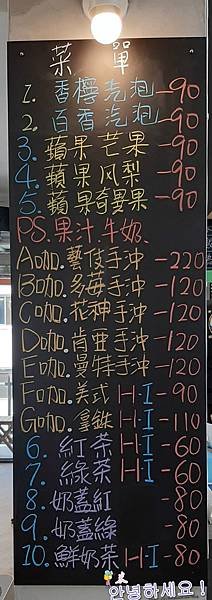 菜單
1. 香檸氣泡-90
2. 百香汽泡-90
3. 蘋果芒果-90
4. 蘋果凤梨-90
5. 蘋果奇曼果-90
PS.果汁.牛奶、
A咖.藝伎手沖-220
B咖.多莓手沖-120
C咖.花神手沖-120
D咖.肯亞手沖-120
E咖.曼特手沖-120
F咖.美式 H-I-90
G咖.拿鉄 H-I-110
6. 紅茶 H I-60
7. 綠茶 H I-60
8. 奶蓋紅 -80
9. 奶蓋綠 -80
10. 鮮奶茶 H-I-80
안녕하세요!